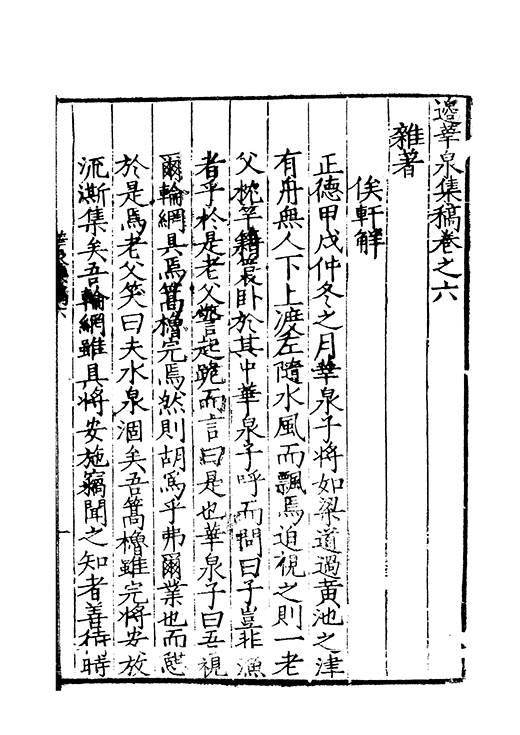 邊華泉集稿卷之六
雜著
俟軒解
正德甲戌仲冬之月華泉子將如梁道過黃池之津
有舟無人下上渡左隨水風而飄焉迫視之則一老
父枕竿籍蓑卧於其中華泉子呼而問曰子豈非漁
者乎於是老父驚起跪而言曰是也華泉子曰吾視
爾輪網具焉篙櫓完焉然則胡為乎弗爾業也而憇
於是焉老父笑曰夫水泉涸矣吾篙櫓雖完將安放
流澌集矣吾輪網雖具將安施竊聞之知者善待時